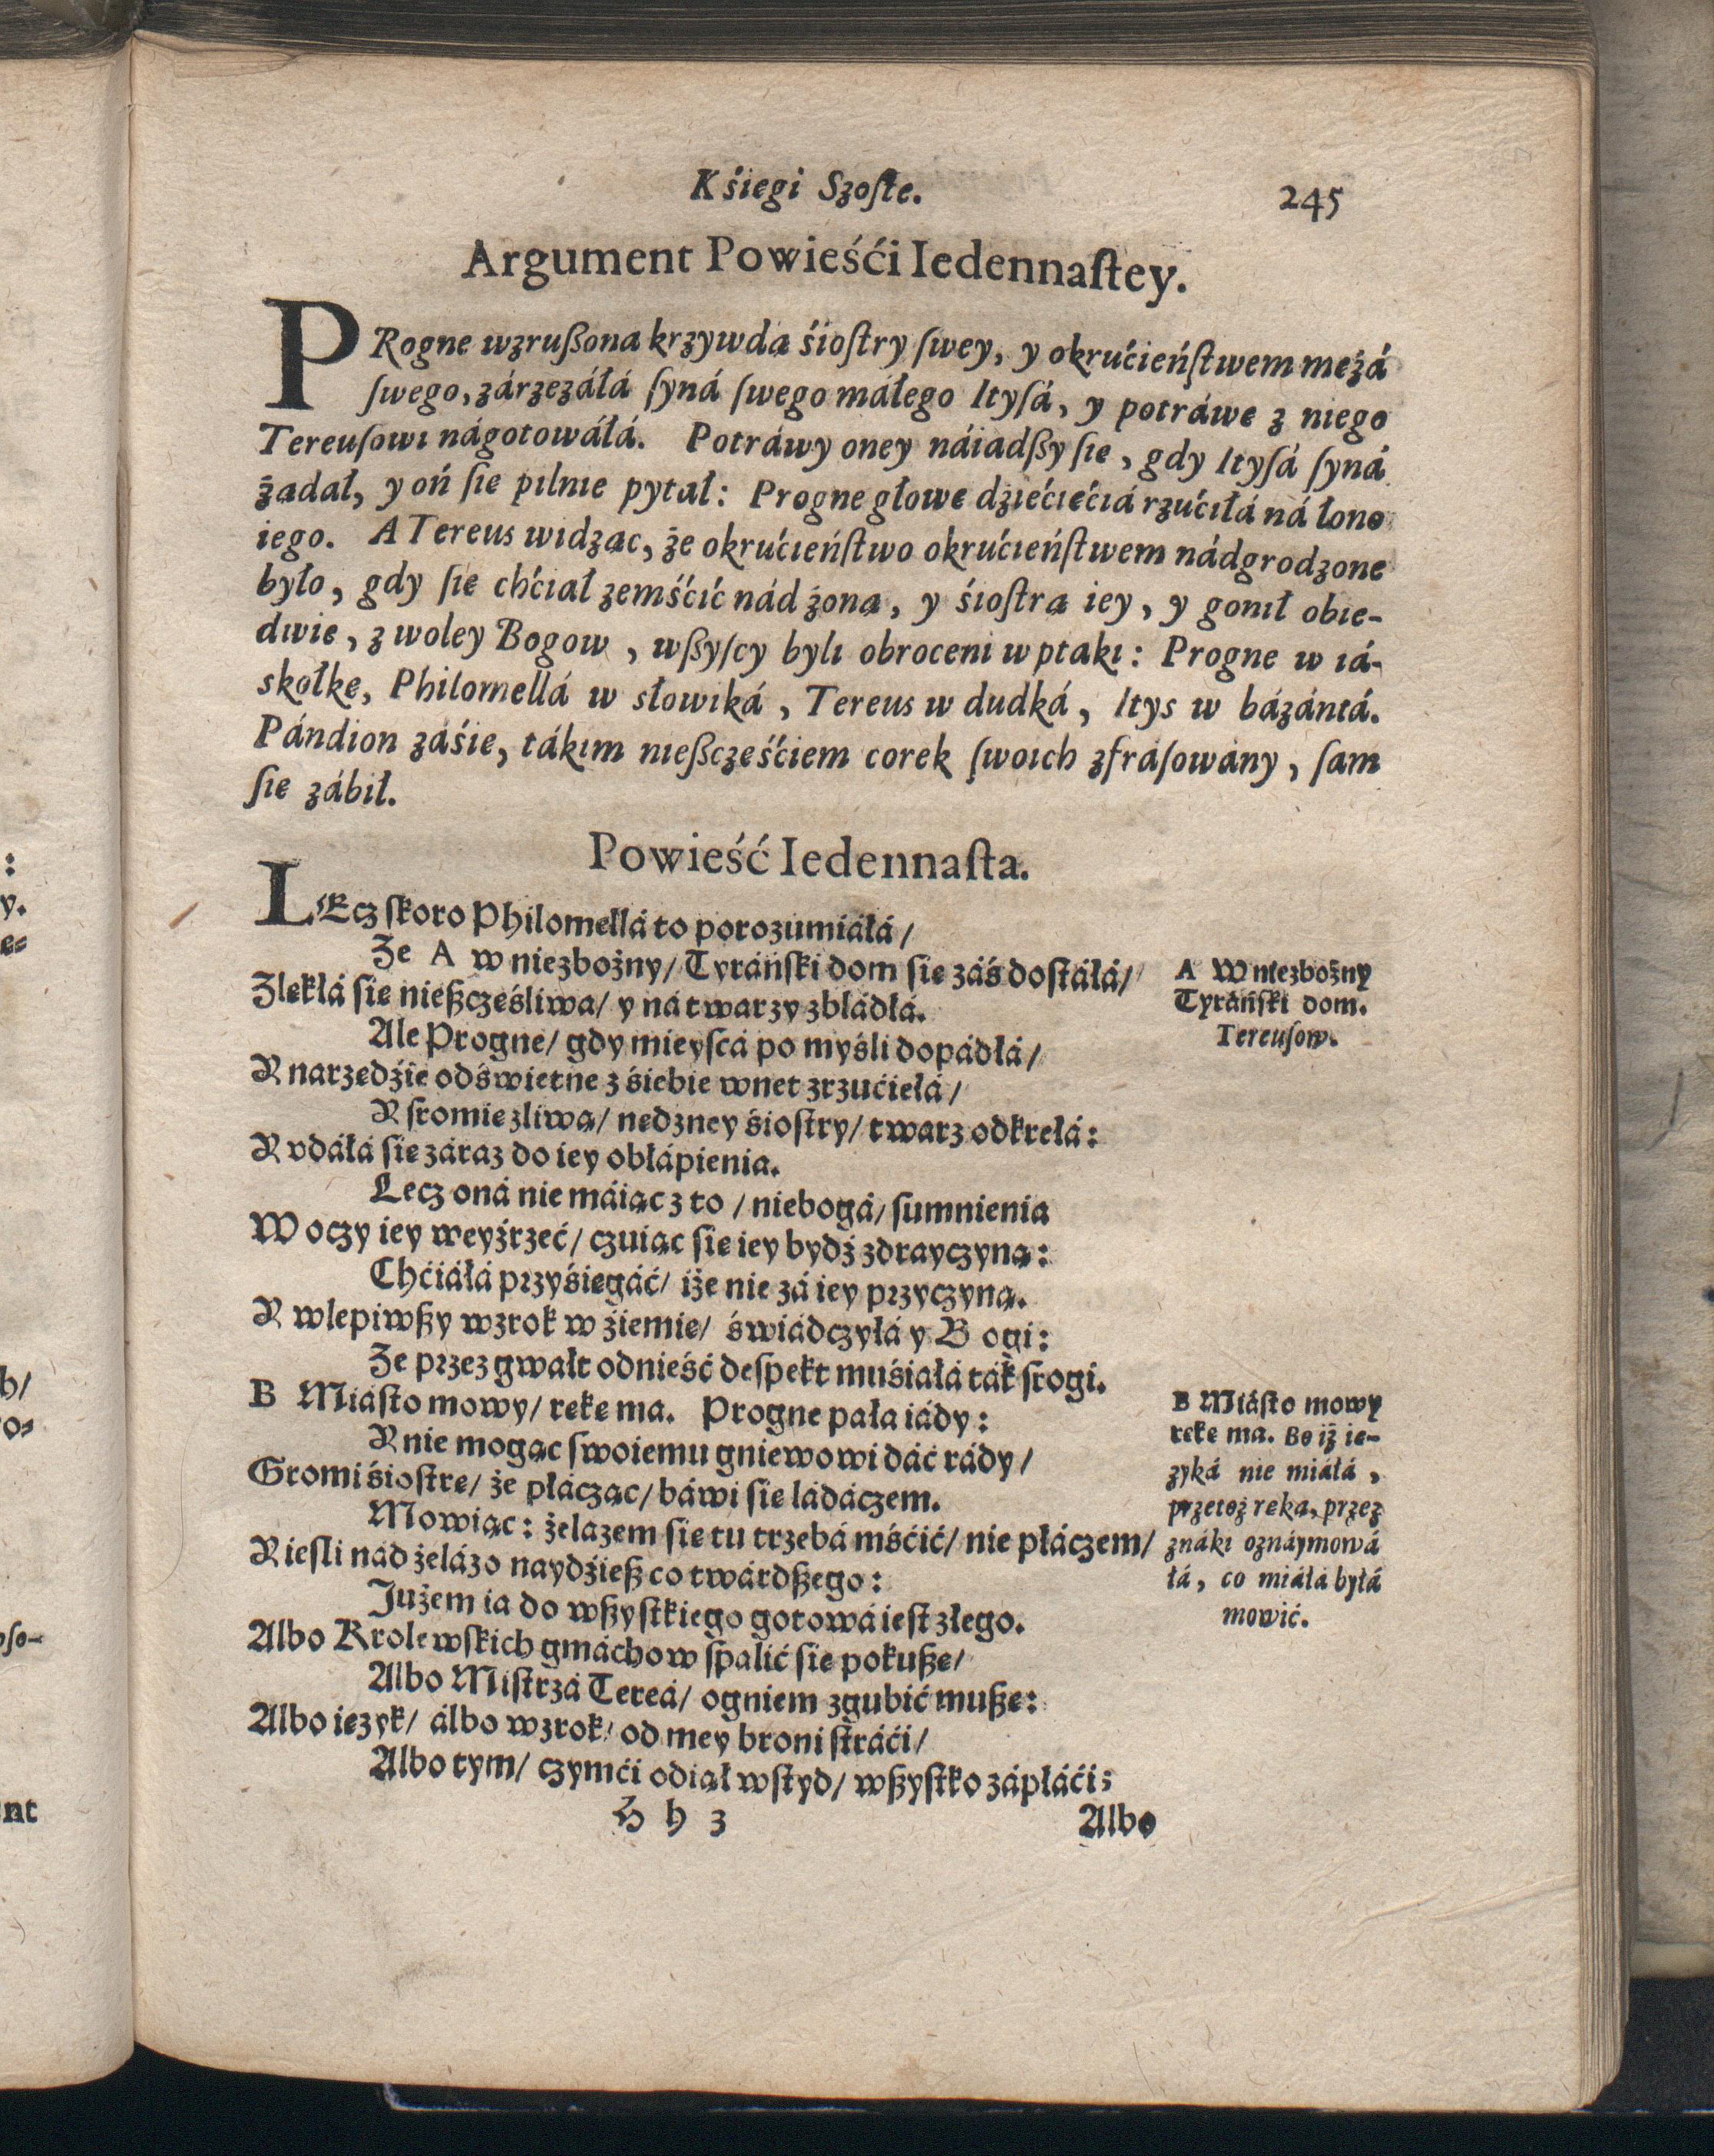 Kśiegi Szoſte.
245
Argument Powieśći Iedennaſtey.
PRogne wzrußona krzywda śioſtry ſwey, y okrućieńſtwem meżá
ſwego, zárzezáłá ſyná ſwego máłego Ityſá, y potráwe z niego
Tereuſowi nágotowáłá. Potráwy oney náiadßy ſie, gdy Ityſá ſyná
żadał, y oń ſie pilnie pytał: Progne głowe dziećiećiá rzućiłá ná łono
iego. A Tereus widzac, że okrućieńſtwo okrućieńſtwem nádgrodzone
było, gdy ſie chćiał zemśćić nád żona, y śioſtra iey, y gonił obie-
dwie, z woley Bogow, wßyſcy byli obroceni w ptaki: Progne w iá-
skołke, Philomellá w słowiká, Tereus w dudká, Itys w bázántá.
Pándion záśie, tákim nießcześćiem corek ſwoich zfráſowány, ſam
ſie zábił.
Powieść Iedennaſta.
LEcz ſkoro Philomellá to porozumiáłá/
Że A w niezbożny/ Tyráńſki dom ſie záś doſtáłá/
A W niezbożny
Zlekłá ſie nießcześliwa/ y ná twarzy zbládłá.
Tyráńſki dom.
Ale Progne/ gdy mieyſcá po myśli dopádłá/
Tereuſow.
Y narzedźie odświetne z śiebie wnet zrzućiełá/
Y ſromieźliwa/ nedzney śioſtry/ twarz odkrełá:
Y vdáłá ſie záraz do iey obłápienia.
Lecz oná nie máiąc z to/ niebogá/ ſumnienia
W oczy iey weyźrzeć/ czuiąc ſie iey bydź zdrayczyną:
Chćiáłá przyśiegáć/ iże nie zá iey przyczyną.
Y wlepiwßy wzrok w źiemie/ świádczyłá y Bogi:
Że przez gwałt odnieść deſpekt muśiałá ták ſrogi.
B Miáſto mowy/ reke ma. Progne pała iády:
B Miáſto mowy
Y nie mogąc ſwoiemu gniewowi dáć rády/
reke ma. Bo iż ie-
Gromi śioſtre/ że płácząc/ báwi ſie ládáczem.
zyká nie miáłá,
Mowiąc: żelazem ſie tu trzebá mśćić/ nie płáczem/
przetoż reka, przez
Y ieſli nád żelázo naydźieß co twárdßego:
znáki oznáymowá
Jużem ia do wßyſtkiego gotowá ieſt złego.
łá, co miáłá byłá
mowić.
Albo Krolewſkich gmáchow ſpalić ſie pokuße/
Albo Miſtrzá Tereá/ ogniem zgubić muße:
Albo iezyk/ álbo wzrok/ od mey broni ſtráći/
Albo tym/ czymći odiął wſtyd/ wßyſtko zápłáći;
H h 3
Albo